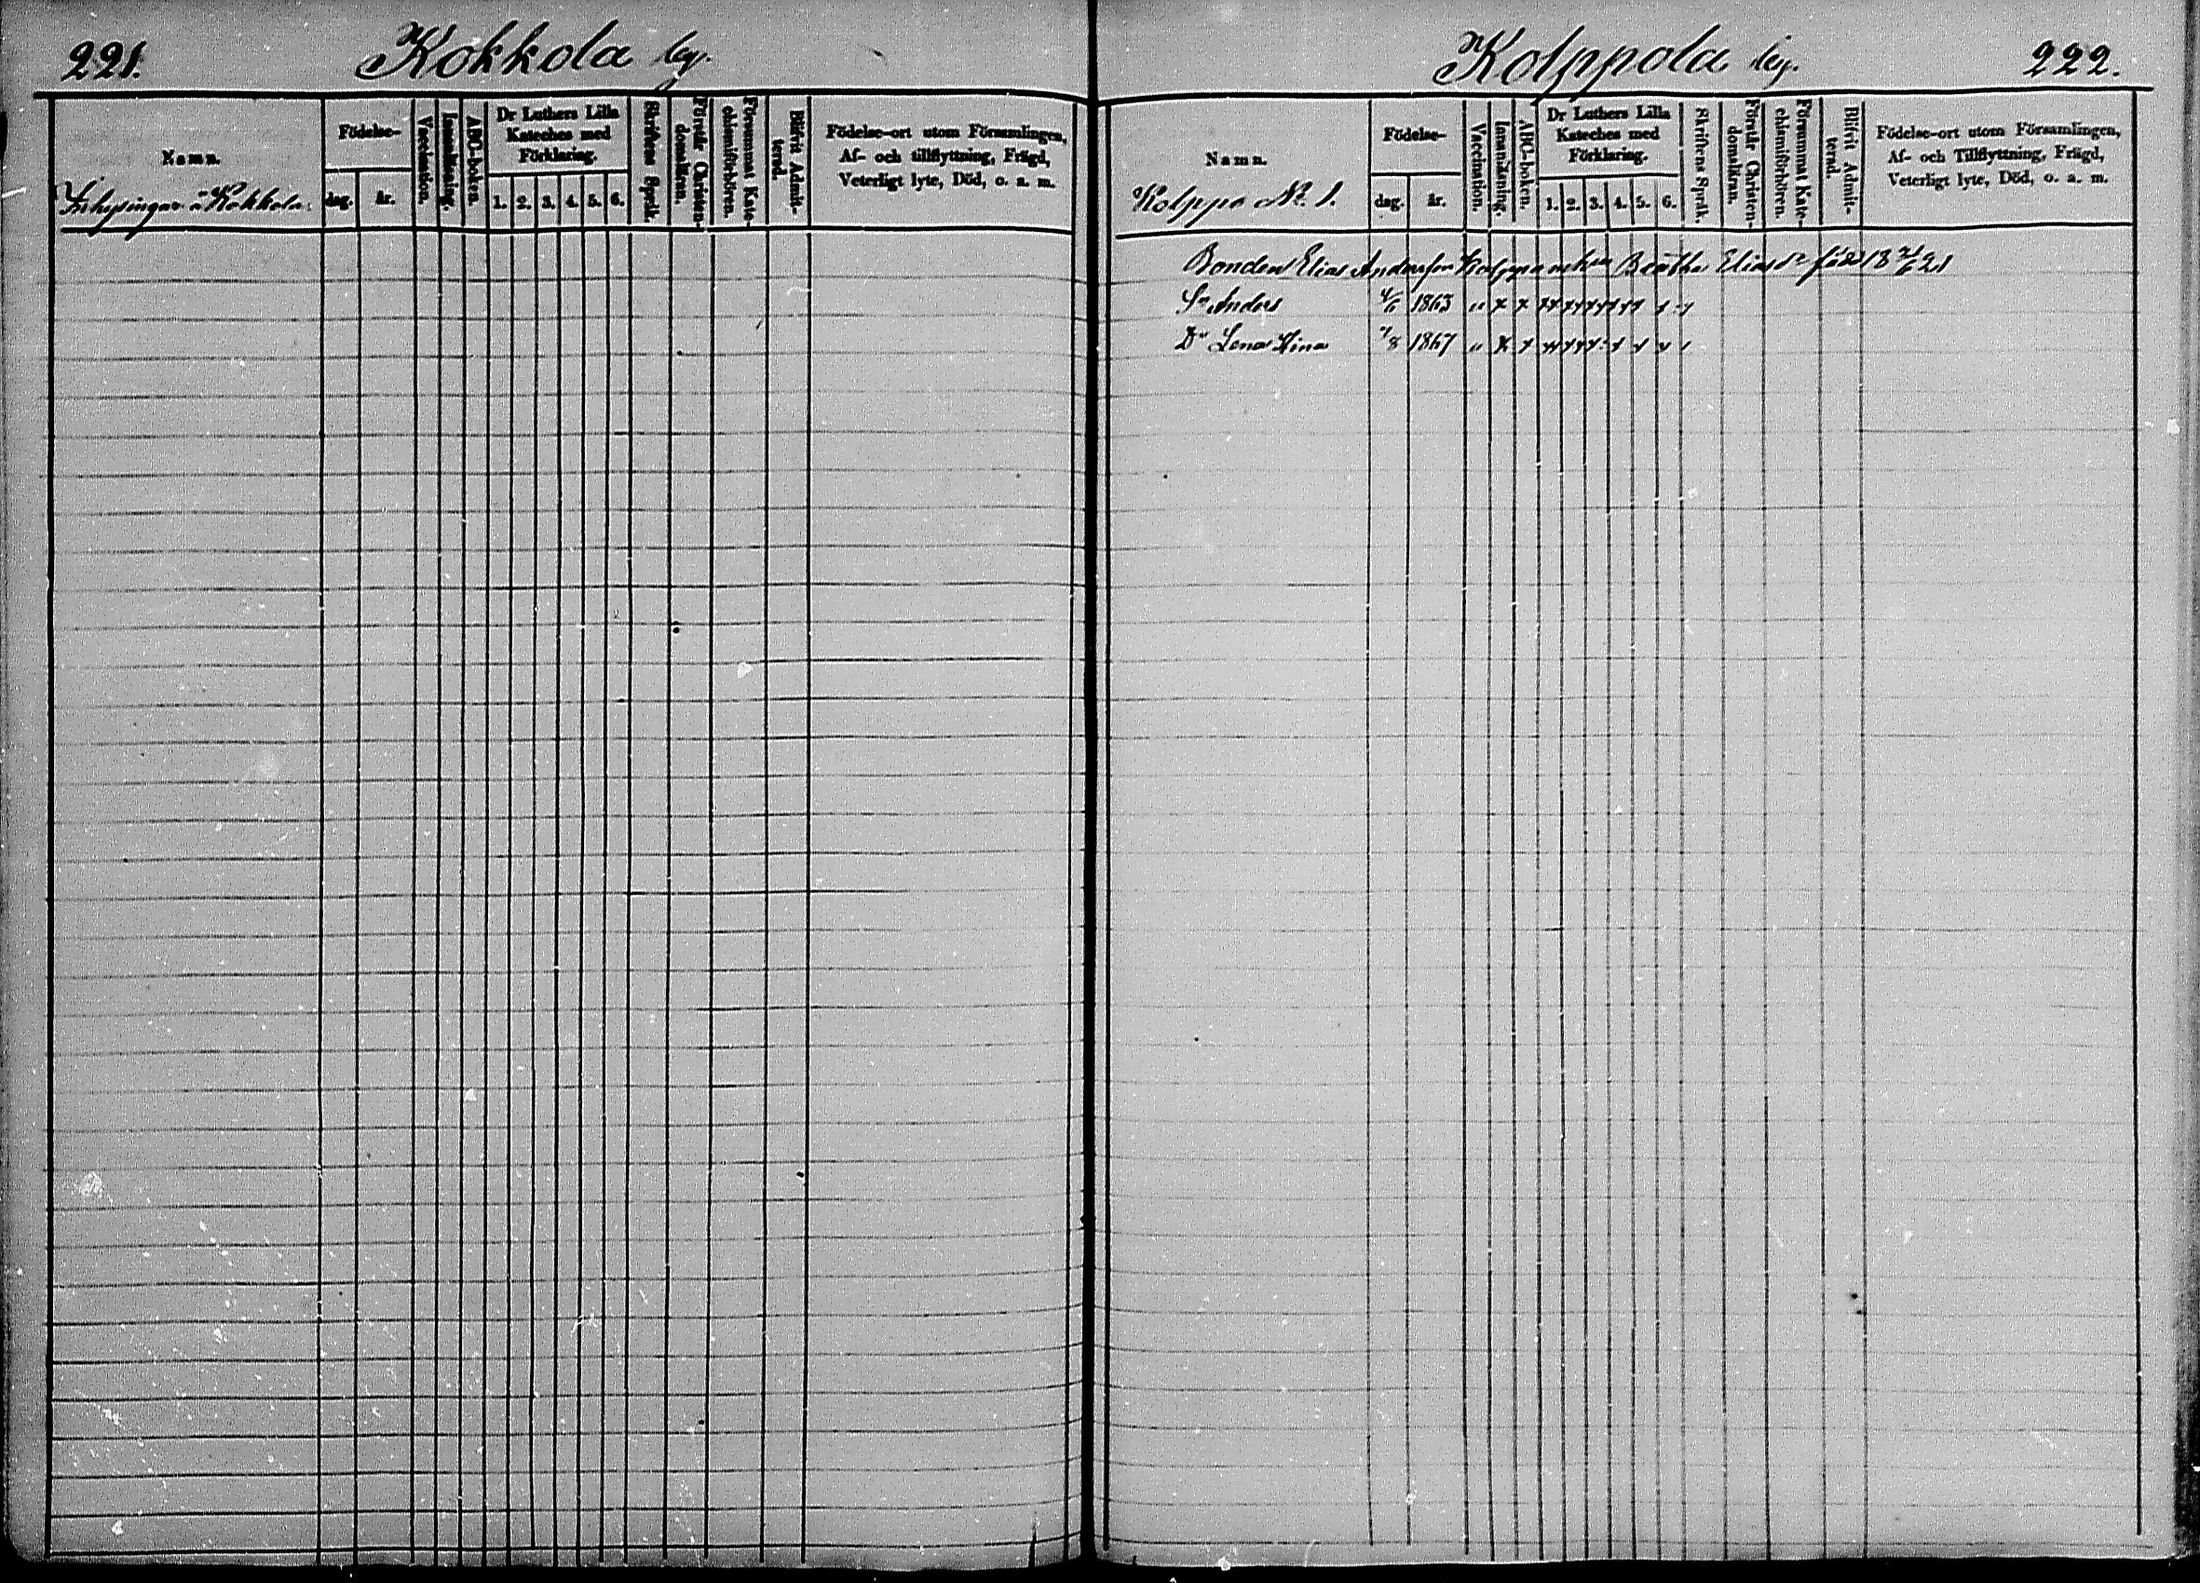 221. Kokkola by.
Namn.
Inhysingar å Kokkola.
Födelse-
dag. år.
Vaccination.
Innanläsning.
ABC-boken.
Dr Luthers Lilla
Kateches med
Förklaring.
1. 2. 3. 4. 5. 6.
Skriftens Språk.
Förstår Christen-
domsläran.
Försummat Kate-
chismiförhören.
Blifvit Admit-
terad.
Födelse-ort utom Församlingen,
Af- och tillflyttning, Frägd,
Veterligt lyte, Död, o. s. m.
Kolppola by. 222.
Namn.
Kolppo No. 1.
Födelse-
dag. år.
Vaccination.
Innanläsning.
ABC-boken.
Dr Luthers Lilla
Kateches med
Förklaring.
1. 2. 3. 4. 5. 6.
Skriftens Språk.
Förstår Christen-
domsläran.
Försummat Kate-
chismiförhören.
Blifvit Admit-
terad.
Födelse-ort utom Församlingen,
Af- och Tillflyttning, Frägd,
Veterligt lyte, Död, o. s. m.
Bonden Elias Andersson Kolppo Elias dr född 18 21
Sn Anders 1863
Dr Lena 1867